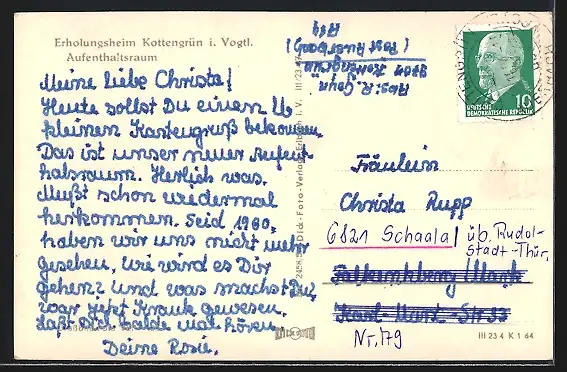 Erholungsheim Kottengrün i. Vogtl.
Aufenthaltsraum
Meine liebe Christa!
Heute sollst Du einen
kleinen Kartengruß bekommen.
Das ist unser neuer Aufent
haltsraum. Herlich was.
Mußt schon wiedermal
herkommen. Seid 1960,
haben wir uns nicht mehr
gesehen, wie wird es Dir
gehen? und was machst Du,
war jetzt Krank gewesen.
Laßt Dich balde mal hören.
Deine Rosie.
Abs: R.
9701 Kottengrün
(Post
Foto-Verlag Erlbach i. V. III/23/
10
DEUTSCHE
DEMOKRATISCHE REPUBLIK
Fräulein
Christa Rupp
6821 Schaala / üb. Rudol-
stadt-Thür.
Falkenberg Mark
Karl-Marx-Str 33
Nr. 179
III 23 4 K 1 64